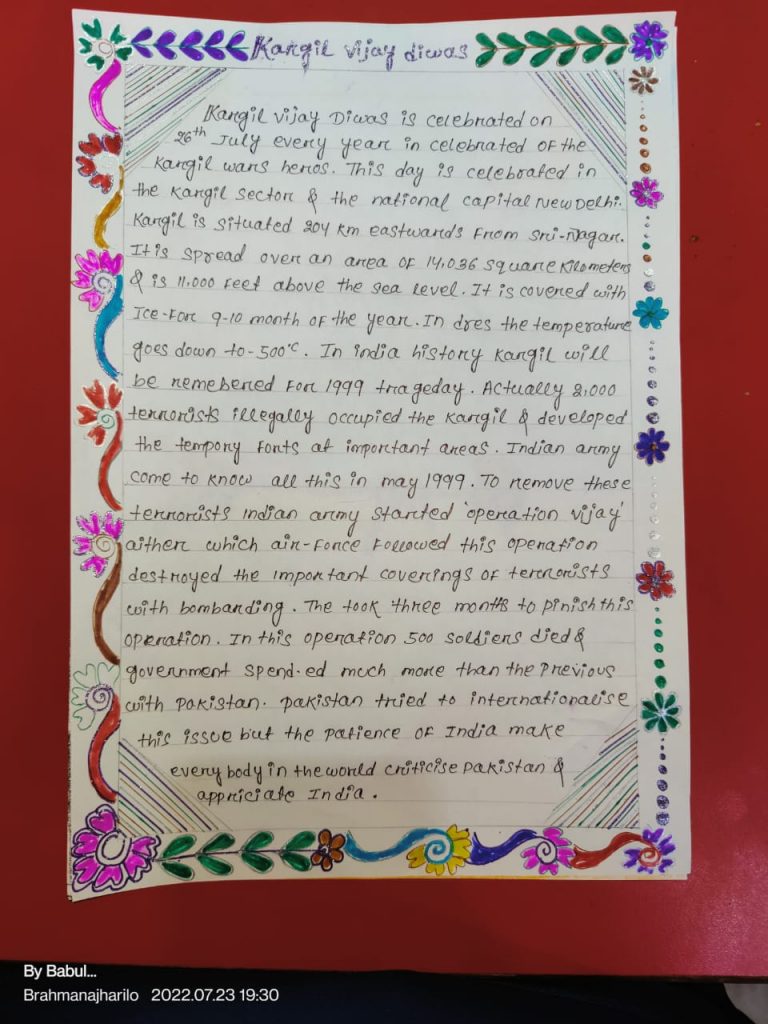 Kargil vijay diwas
Kargil vijay Diwas is celebrated on
26th July every year in celebrated of the
Kargil wars heros. This day is celebrated in
the Kargil sector & the national capital New Delhi.
Kargil is situated 204 km eastwards from Sri-Nagar.
It is spread over an area of 14,036 square kilometers
& is 11,000 feet above the sea level. It is covered with
Ice-for 9-10 month of the year. In dres the temperature
goes down to -500°C. In india history Kargil will
be remebered for 1999 trageday. Actually 3,000
terrorists illegally occupied the Kargil & developed
the tempory fonts at important areas. Indian army
come to know all this in may 1999. To remove these
terrorists Indian army started 'operation vijay'
aither which air-force followed this operation
destroyed the important coverings of terrorists
with bombarding. The took three months to pinish this
operation. In this operation 500 soldiers died &
government spend-ed much more than the previous
with Pakistan. Pakistan tried to internationalise
this issue but the patience of India make
everybody in the world criticise Pakistan &
appriciate India.
By Babul...
Brahmanajharilo 2022.07.23 19:30